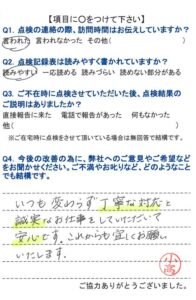 【項目に○をつけて下さい】
Q1. 点検の連絡の際、訪問時間はお伝えしていますか？
言われた 言われなかった その他(
)
Q2. 点検記録表は読みやすく書かれていますか？
読みやすい 一応読める 読みづらい 読めない部分がある
Q3. ご不在時に点検させていただいた後、点検結果の
ご説明はありましたか？
直接報告に来た 電話で報告があった 何もなかった
他(
)
※ご在宅時に点検をさせて頂いている場合は無回答で結構です。
Q4. 今後の改善の為に、弊社へのご意見やご希望など
をお聞かせください。ご不満やお叱りなど、どのようなこと
でも結構です。
いつも変わらず丁寧な対応と
誠実なお仕事をしていただいて
安心です。これからも宜しくお願い
いたします。
小高
ご協力ありがとうございました。